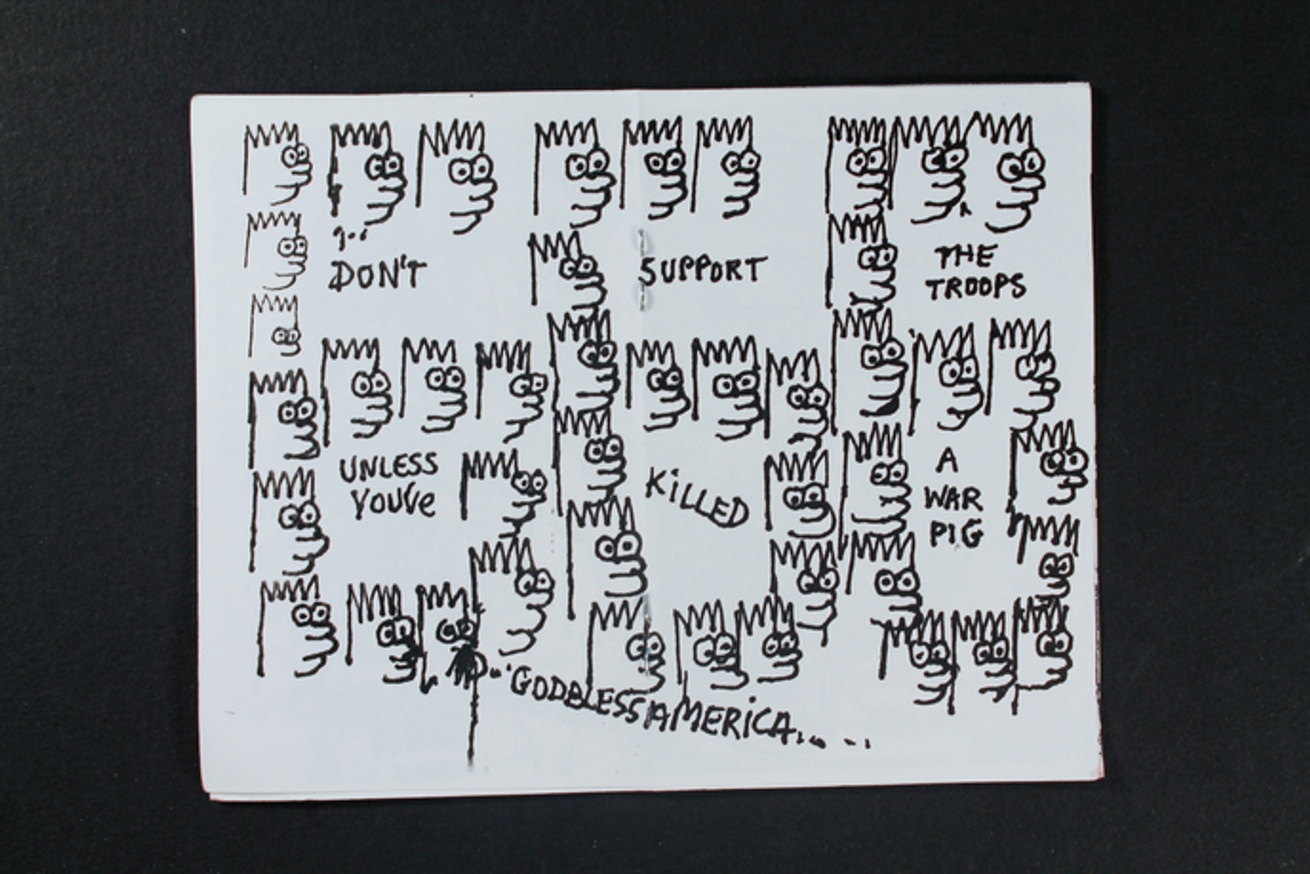 DON'T
SUPPORT
THE
TROOPS
UNLESS
YOU'VE
KILLED
A
WAR
PIG
GODBLESSAMERICA.....